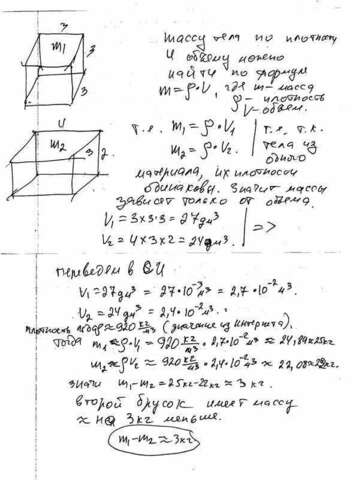 3
m₁
3
3
массу тела по плотности
и объему можно
найти по формуле
m = ρ·V, где m - масса
ρ - плотность
V - объем.
4
m₂
3
2
т.е. m₁ = ρ·V₁ | т.е. т.к.
m₂ = ρ·V₂. | тела из
одного
материала, их плотности
одинаковы. Значит массы
зависят только от объема.
V₁ = 3×3×3 = 27 дм³
V₂ = 4×3×2 = 24 дм³. | =>
переведем в СИ
V₁ = 27 дм³ = 27·10⁻³ м³ = 2,7·10⁻² м³
V₂ = 24 дм³ = 2,4·10⁻² м³.
плотность ≈ 920 кг/м³ (значение из интернета).
тогда m₁ = ρ·V₁ = 920 кг/м³ · 2,7·10⁻² м³ ≈ 24,84≈25кг
m₂ = ρV₂ ≈ 920 кг/м³ · 2,4·10⁻² м³ ≈ 22,08≈22кг.
значит m₁-m₂ = 25кг-22кг ≈ 3 кг.
второй брусок имеет массу
≈ на 3кг меньше.
m₁-m₂ ≈ 3кг